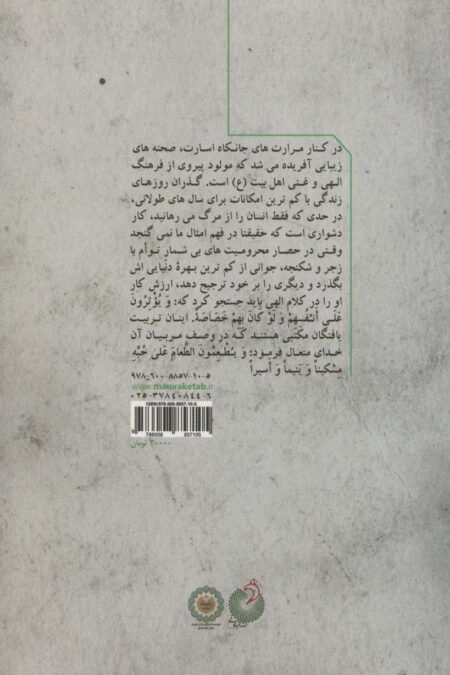 در کنار مرارت های جانکاه اسارت، صحنه های
زیبایی آفریده می شد که مولود پیروی از فرهنگ
الهی و غنی اهل بیت (ع) است. گذران روزهای
زندگی با کم ترین امکانات برای سال های طولانی،
در حدی که فقط انسان را از مرگ می رهانید، کار
دشواری است که حقیقتا در فهم امثال ما نمی گنجد
وقتی در حصار محرومیت های بی شمارِ توأم با
زجر و شکنجه، جوانی از کم ترین بهرهٔ دنیایی اش
بگذرد و دیگری را بر خود ترجیح دهد، ارزش کار
او را در کلام الهی باید جستجو کرد که: وَ یُؤْثِرُونَ
عَلَی أَنْفُسِهِمْ وَ لَوْ کَانَ بِهِمْ خَصَاصَةٌ. اینان تربیت
یافتگان مکتبی هستند که در وصف مربیان آن
خدای متعال فرمود: وَ یُطْعِمُونَ الطَّعامَ عَلی حُبِّهِ
مِسْکیناً وَ یَتیماً وَ أَسیراً
۹۷۸-۶۰۰-۸۸۵۷-۱۰-۵
www.manvaketab.ir
۰۲۵-۳۷۸۴۰۸۴۴-۶
ISBN:978-600-8857-10-5
9 786008 857105
۲۰۰۰۰ تومان